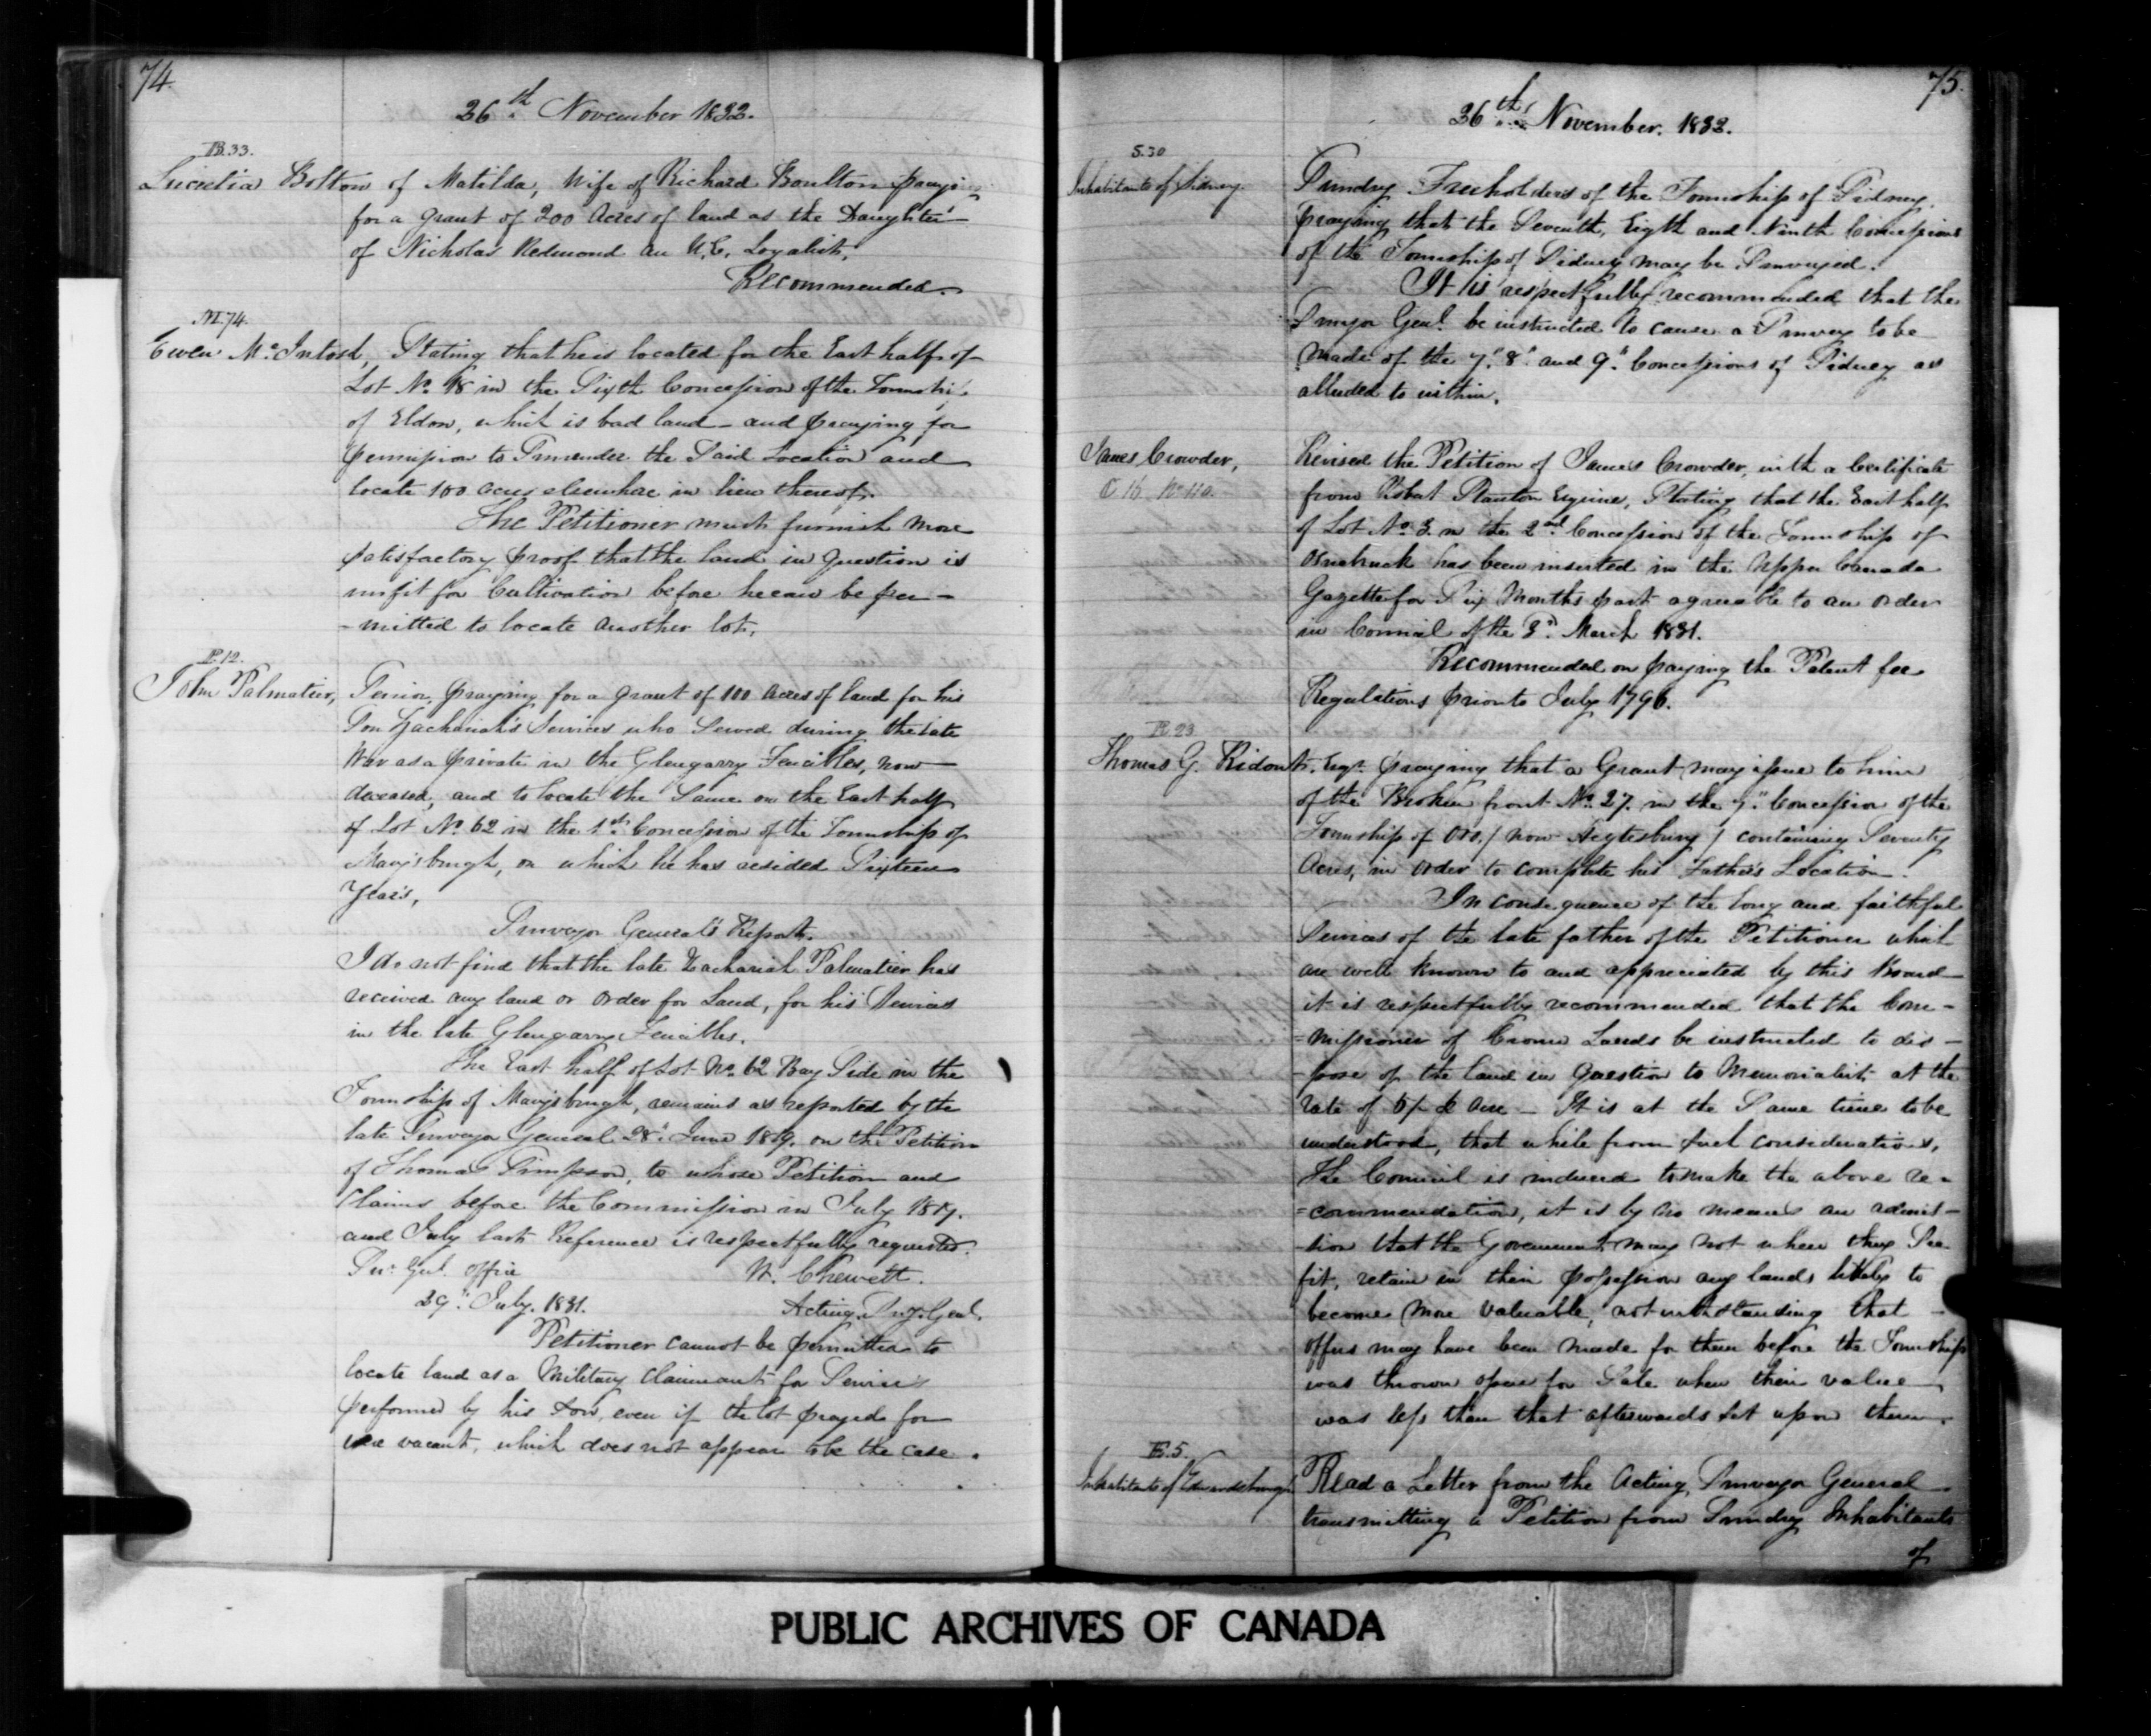 74.
26th November 1832.
B.33.
Lucretia Bolton of Matilda, Wife of Richard Boulton praying
for a grant of 200 Acres of land as the Daughter
of Nicholas Redmond an U.E. Loyalist,
Recommended.
M.74.
Ewen McIntosh, Stating that he is located for the East half of
Lot No. 18 in the Sixth Concession of the Townshi
of Eldon, which is bad land – and praying for
permission to Surrender the Said Location and
locate 100 acres elsewhere in lieu thereof.
The Petitioner must furnish more
satisfactory proof that the land in Question is
unfit for Cultivation before he can be per-
-mitted to locate another lot.
P.12.
John Palmatier, Senior, praying for a grant of 100 Acres of land for his
Son Zachariah's Services who Served during the late
War as a private in the Glengarry Fencibles, now
deceased, and to locate the Same on the East half
of Lot No. 62 in the 1st Concession of the Township of
Marysburgh, on which he has resided Sixteen
Years,
Surveyor General's Report.
I do not find that the late Zachariah Palmatier has
received any land or order for Land, for his Services
in the late Glengarry Fencibles.
The East half of Lot No. 62 Bay Side in the
Township of Marysburgh, remains as reported by the
late Surveyor General 28th June 1819. on the Petition
of Thomas Simpson, to whose Petition and
Claims before the Commission in July 1819.
and July last Reference is respectfully requested.
Sur. Genl. Office W. Chewett.
29th July. 1831. Acting Sur. Genl.
Petitioner cannot be permitted to
locate land as a Military Claimant for Services
performed by his Son, even if the lot prayed for
were vacant, which does not appear to be the case.
75.
26th November. 1832.
S.30
Inhabitants of Sidney. Sundry Freeholders of the Township of Sidney,
praying that the Seventh, Eigth and Ninth Concessions
of the Township of Sidney may be Surveyed.
It is respectfully recommended that the
Surveyor Genl. be instructed to cause a Survey to be
made of the 7th 8th and 9th Concessions of Sidney as
alluded to within.
James Crowder, Revised the Petition of James Crowder, with a Certificate
C 16 No 110. from Robert Stanton Esquire, Stating that the East half
of Lot No. 3 in the 2nd Concession of the Township of
Osnabruck has been inserted in the Upper Canada
Gazette for Six Months past agreeable to an Order
in Council of the 3d. March 1831.
Recommended on paying the Patent fee
Regulations prior to July 1796.
R 23
Thomas G. Ridout, Esqr. praying that a Grant may issue to him
of the Broken front No. 27. in the 7th Concession of the
Township of Oro, / now / containing Seventy
Acres, in order to complete his Father's Location.
In consequence of the long and faithful
Services of the late father of the Petitioner which
are well known to and appreciated by this Board
it is respectfully recommended that the Com-
=missioner of Crown Lands be instructed to dis-
-pose of the land in Question to Memorialist at the
rate of 5/- Acre – It is at the Same time to be
understood, that while from such considerations,
The Council is induced to make the above re-
=commendation, it is by no means an admis-
-sion that the Government may not when they See
fit, retain in their possession any lands likely to
become more valuable, notwithstanding that
offers may have been made for them before the Township
was thrown open for Sale when their value
was less than that afterwards set upon them.
E.5.
Inhabitants of Edwardsburgh Read a Letter from the Acting Surveyor General
transmitting a Petition from Sundry Inhabitants
of
PUBLIC ARCHIVES OF CANADA